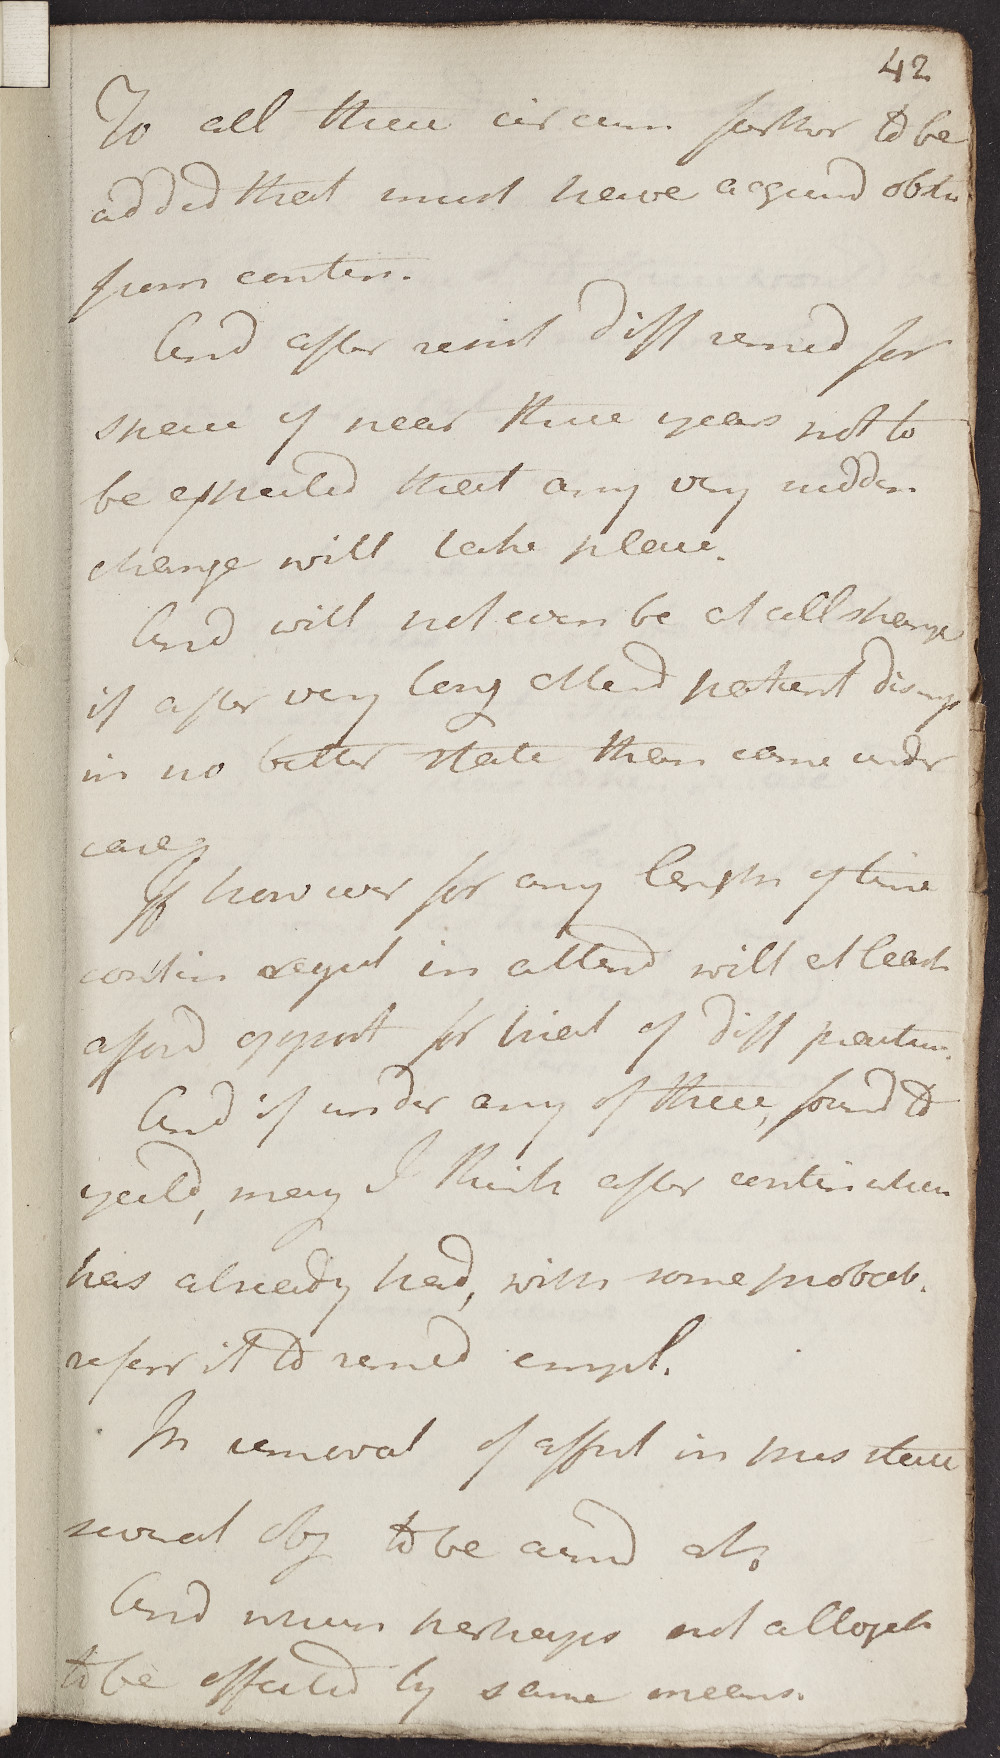 42
To all these circum further to be
added that must have acquired obsti
from contin.
And after resist diff remed for
space of near three years not to
be expected that any very sudden
change will take place.
And will not even be at all strange
if after very long attend patient dismiss
in no better state than came under
care.
If however for any length of time
contin regul in attend will at least
afford opport for trial of diff practices.
And if under any of these, found to
yeild, may I think after contin which
has already had, with some probab.
referr it to remed empl.
In removal of affect in pres case
several obj to be aimd at.
And which perhaps not altogeth
to be effected by same means.